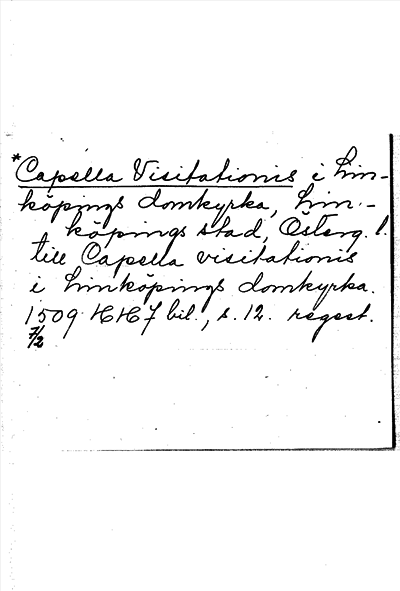 *Capella Visitationis i Lin-
köpings domkyrka, Lin-
köpings stad, Österg. l.
till Capella visitationis
i Linköpings domkyrka.
1509 HH 7 bil., s. 12. regest.
7/2